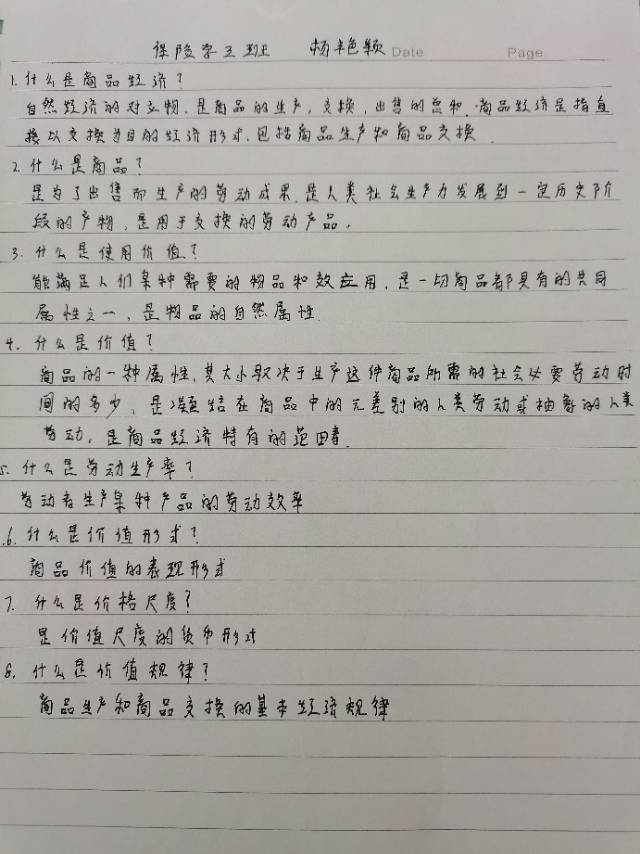 保险学3班 杨艳颖 Date Page
1.什么是商品经济?
自然经济的对立物、是商品的生产,交换,出售的总和.商品经济是指直
接以交换为目的经济形式,包括商品生产和商品交换.
2.什么是商品?
是为了出售而生产的劳动成果,是人类社会生产力发展到一定历史阶
段的产物,是用于交换的劳动产品。
3.什么是使用价值?
能满足人们某种需要的物品和效应用,是一切商品都具有的共同
属性之一,是物品的自然属性.
4.什么是价值?
商品的一种属性,其大小取决于生产这种商品所需的社会必要劳动时
间的多少,是凝结在商品中的无差别的人类劳动或抽象的人类
劳动,是商品经济特有的范畴.
5.什么是劳动生产率?
劳动者生产某种产品的劳动效率
6.什么是价值形式?
商品价值的表现形式
7.什么是价格尺度?
是价值尺度的货币形式
8.什么是价值规律?
商品生产和商品交换的基本经济规律